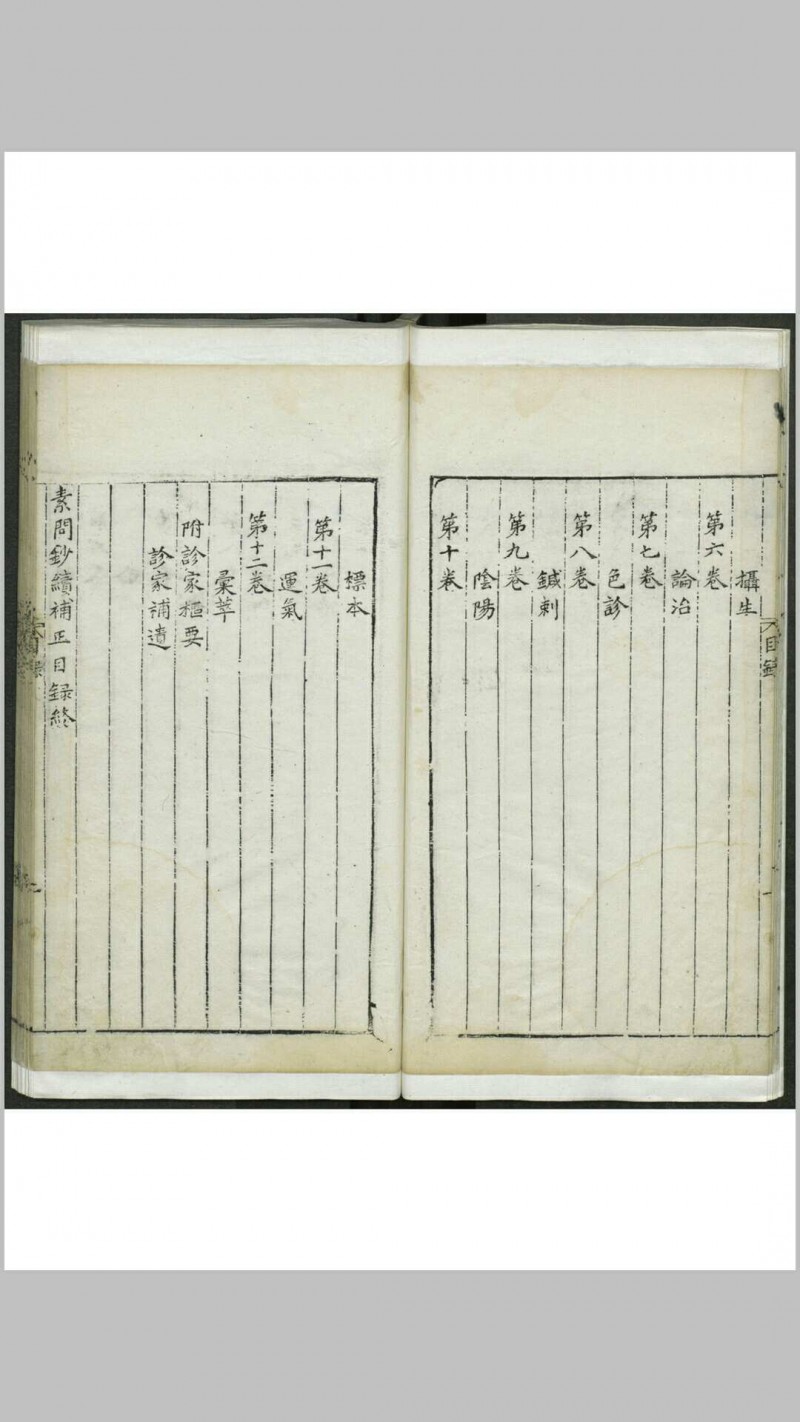 目録
攝生
第六卷
論治
第七卷
色診
第八卷
鍼刺
第九卷
陰陽
第十卷
摽本
第十一卷
運氣
第十二卷
彙萃
附診家樞要
診家補遺
素問鈔續補正目録終